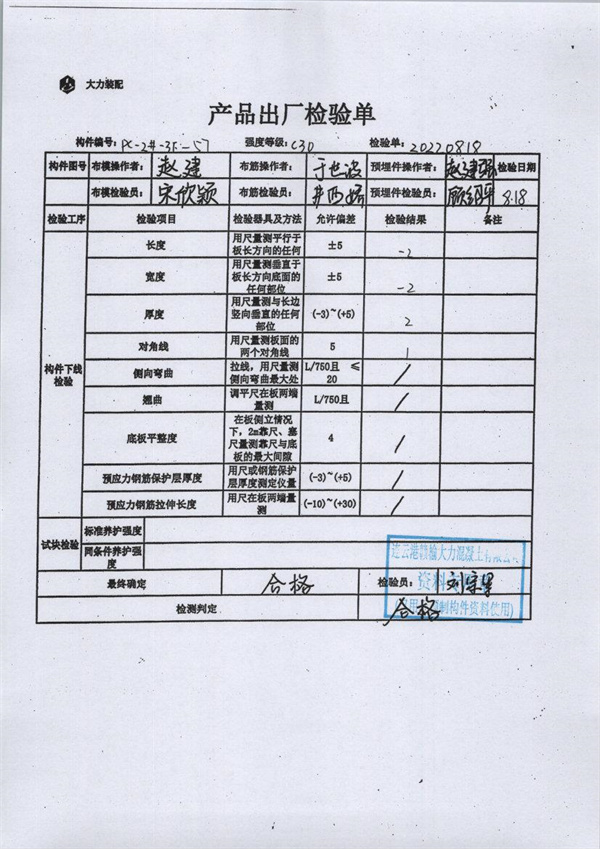 大力装配
产品出厂检验单
构件编号: PC-2#-3F-57 强度等级: C30 检验单: 20220818
构件图号 布模操作者: 赵建 布筋操作者: 于世波 预埋件操作者: 赵建 检验日期
布模检验员: 宋欣颖 布筋检验员: 预埋件检验员: 8.18
检验工序 检验项目 检验器具及方法 允许偏差 检验结果 备注
构件下线检验
长度 用尺量测平行于板长方向的任何 ±5 -2
宽度 用尺量测垂直于板长方向底面的任何部位 ±5 -2
厚度 用尺量测与长边竖向垂直的任何部位 (-3)~(+5) 2
对角线 用尺量测板面的两个对角线 5 1
侧向弯曲 拉线，用尺量测侧向弯曲最大处 L/750且 ≤20 /
翘曲 调平尺在板两端量测 L/750且 /
底板平整度 在板侧立情况下，2m靠尺、塞尺量测靠尺与底板的最大间隙 4 /
预应力钢筋保护层厚度 用尺或钢筋保护层厚度测定仪量 (-3)~(+5) /
预应力钢筋拉伸长度 用尺在板两端量测 (-10)~(+30) /
试块检验 标准养护强度
同条件养护强度
连云港赣榆大力混凝土有限公司
最终确定 合格 检验员:
资料
检测判定 合格
制构件资料使用)